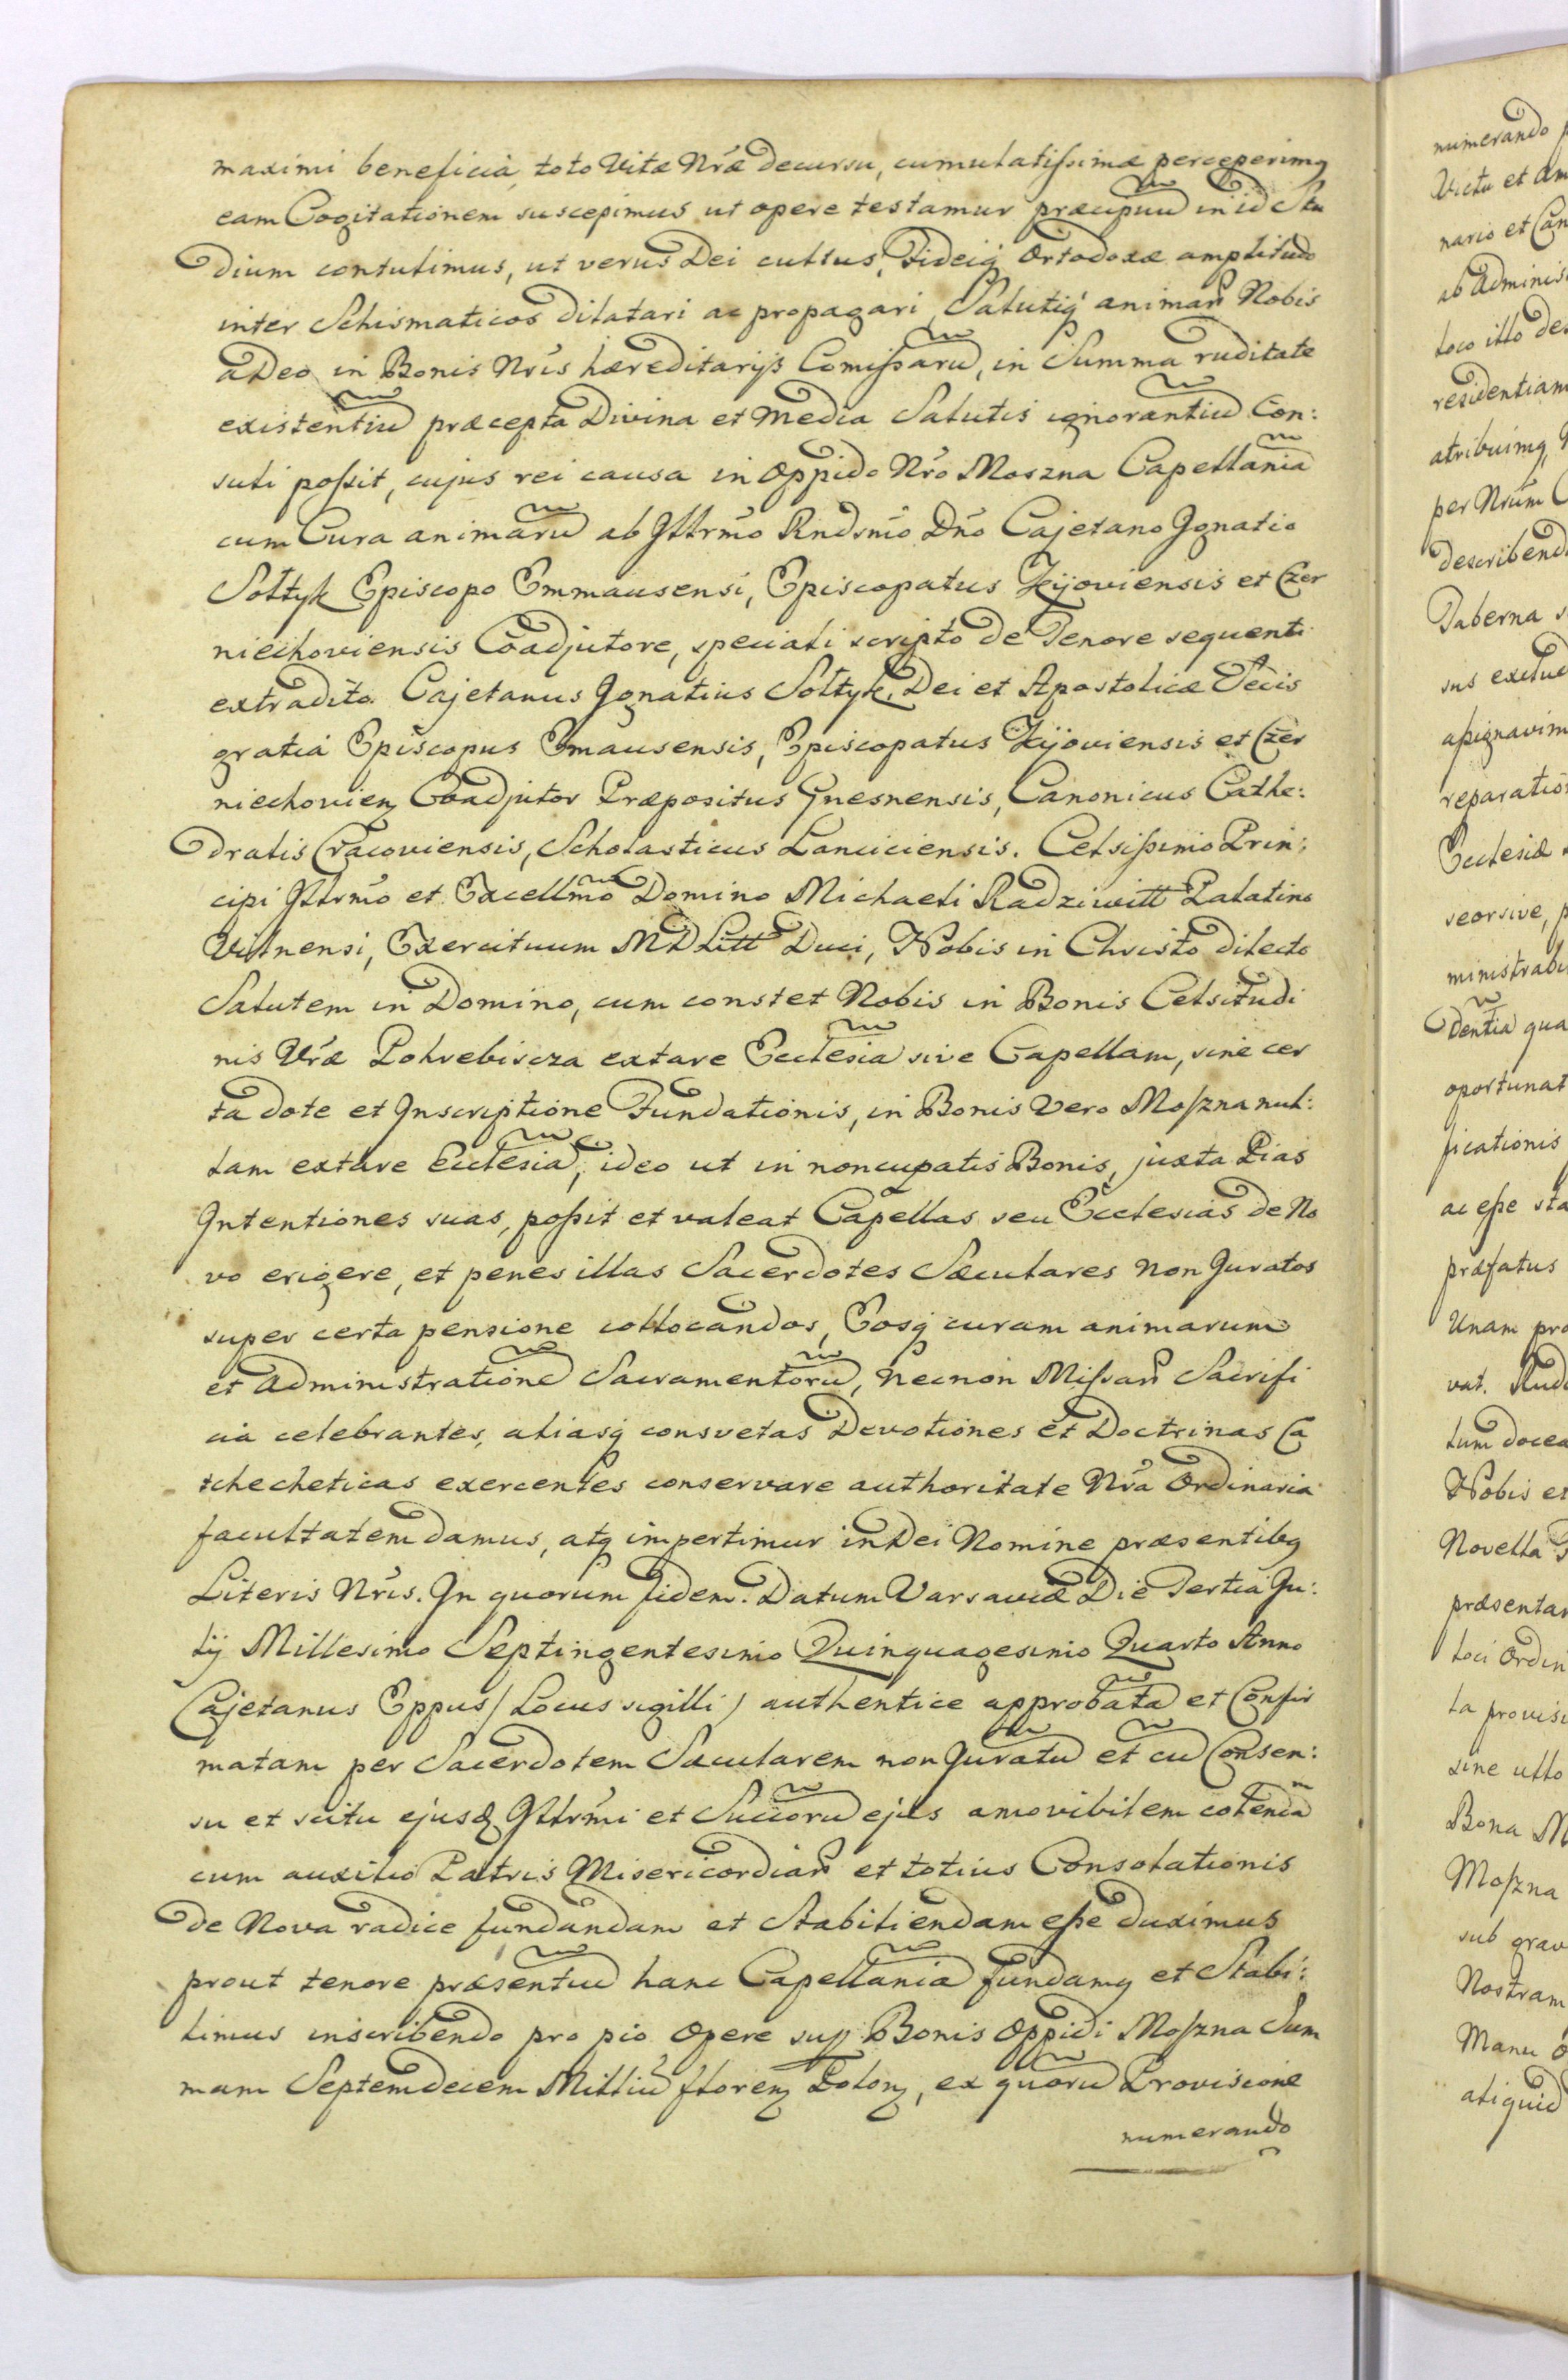 maximi beneficia, toto Vitæ Nr̃æ decursu, cumulatissimæ perceperimq
eam Cogitationem suscepimus ut opere testamur præcipuũ in id Stu
dium contulimus, ut verus Dei cultus, Fideiq Ortodoxæ amplitudo
inter Schismaticos dilatari ac propagari, Salutiq animaꝝ Nobis
a Deo in Bonis Nr̃is hæreditarijs Comissarũ, in Summa ruditate
existentiũ præcepta Divina et Media Salutis ignorantiũ Con:
suli possit, cujus rei causa in Oppido Nr̃o Moszna Capellaniã
cum Cura animarũ ab Jllrm̃o Rndsm̃o Dño Cajetano Jgnatio
Sołtyk Episcopo Emmausensi, Episcopatus Kijoviensis et Czer
niechoviensis Coadjutore, speciali scripto de Tenore sequenti
extradito. Cajetanus Jgnatius Sołtyk, Dei et Apostolicæ Sẽcis
gratia Episcopus Emausensis, Episcopatus Kijoviensis et Czer
niechovienȝ Coadjutor Præpositus Gnesnensis, Canonicus Cathe:
dralis Cracoviensis, Scholasticus Lanciciensis. Celsissimo Prin:
cipi Jllrm̃o et Excellm̃o Domino Michaeli Radziwiłł Palatino
Vilnensi, Exercituum M D Litt Duci, Nobis in Christo dilecto
Salutem in Domino, cum constet Nobis in Bonis Celsitudi
nis Vr̃æ Pohrebiscza extare Ecclesiã sive Capellam, sine cer
ta dote et Jnscriptione Fundationis, in Bonis Vero Moszna nul:
lam extare Ecclesiã, ideo ut in noncupatis Bonis, juxta Pias
Jntentiones suas, possit et valeat Capellas seu Ecclesias de No
vo erigere, et penes illas Sacerdotes Sæculares Non Juratos
super certa pensione collocandos, Eosq curam animarum
et Administrationẽ Sacramentorũ, Necnon Missaꝝ Sacrifi
cia celebrantes, aliasq consvetas Devotiones et Doctrinas Ca
tchecheticas exercentes conservare authoritate Nr̃a Ordinaria
facultatem damus, atq impertimur in Dei Nomine præsentibq
Literis Nr̃is. Jn quorum fidem. Datum Varsaviæ Die Tertia Ju:
lij Millesimo Septingentesimo Quinquagesimo Quarto Anno
Cajetanus Eppus (Locus sigilli) authentice approbatã et Confir
matam per Sacerdotem Sæcularem non Juratũ et cũ Consen:
su et scitu ejusd Jllrm̃i et Succorũ ejus amovibilem colendã
cum auxilio Patris Misericordiaꝝ et totius Consolationis
de Nova radice fundandam et Stabiliendam esse duximus
prout tenore præsentiũ hanc Capellaniã fundamq et Stabi:
limus inscribendo pro pio Opere sup Bonis Oppidi Moszna Sum
mam Septemdecem Milliũ florenȝ Polonȝ, ex quorũ Provisione
numerando
numerando
Victu et
nario et
ab Adminis
loco illo
residentiam
atribuimq,
per Nr̃um
describend
Taberna
sus
assignavim
reparatio
Ecclesiæ
seorsive,
ministrab
dentia qua
oportunat
ficationis
ac esse sta
præfatus
Unam pro
vat.
lum docea
Nobis et
Novella
præsentan
loci Ordin
la provisi
sine ullo
Bona M
Moszna
sub grav
Nostram
Manu
aliquid